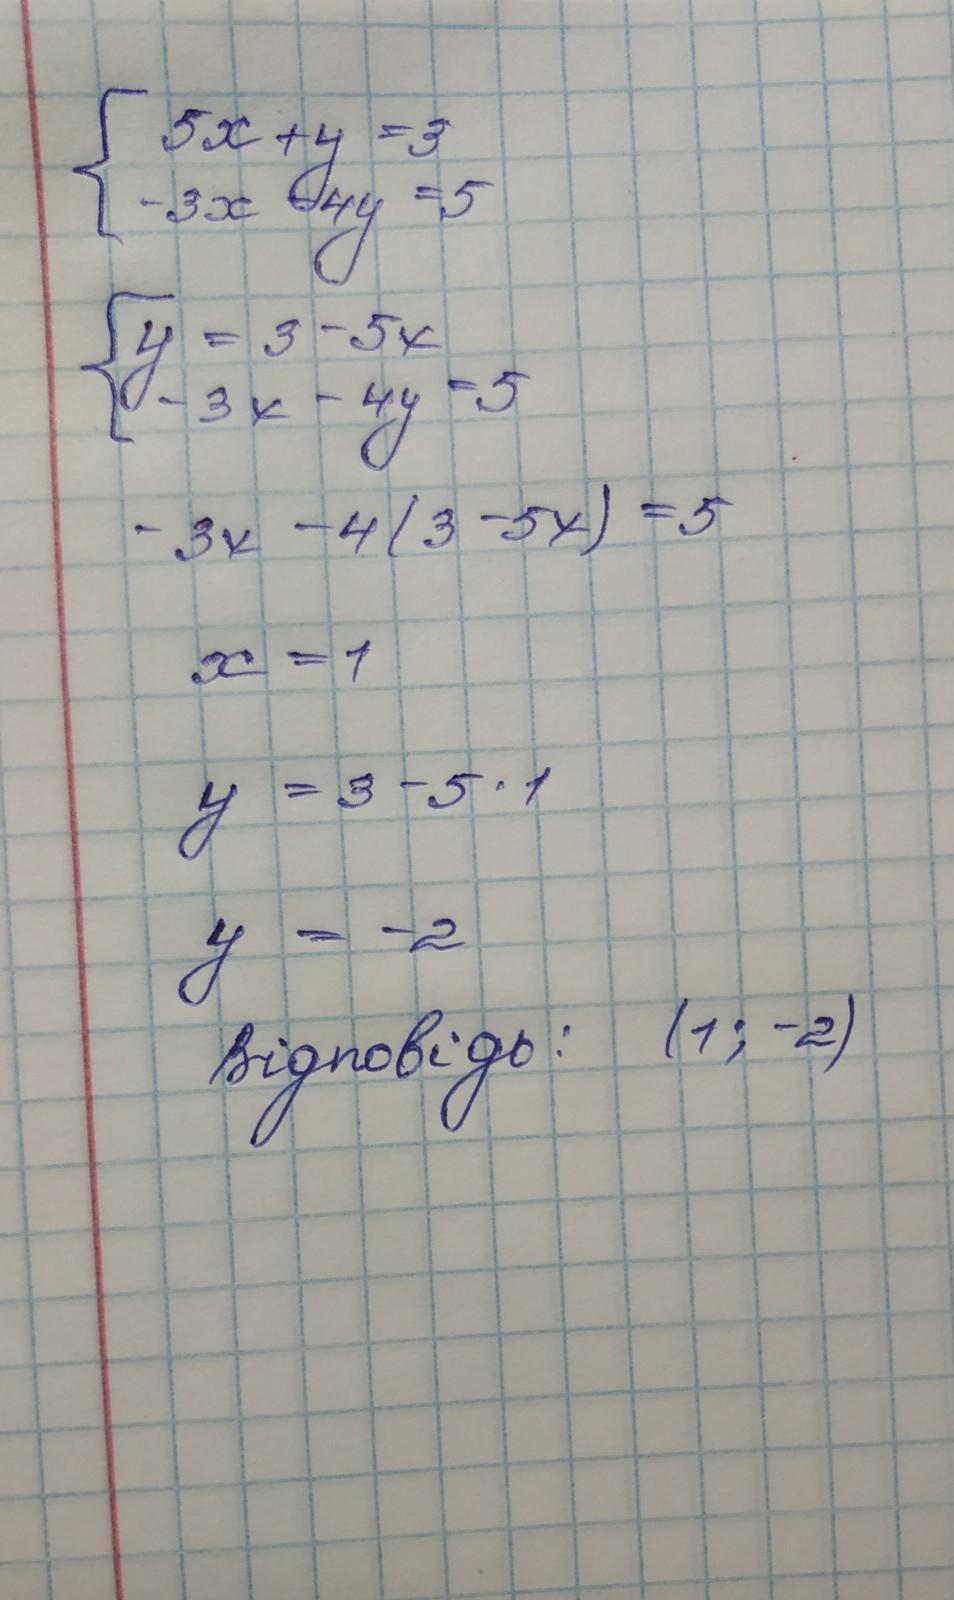 5x + y = 3
-3x - 4y = 5
y = 3 - 5x
-3x - 4y = 5
-3x - 4(3 - 5x) = 5
x = 1
y = 3 - 5 · 1
y = -2
Відповідь: (1; -2)